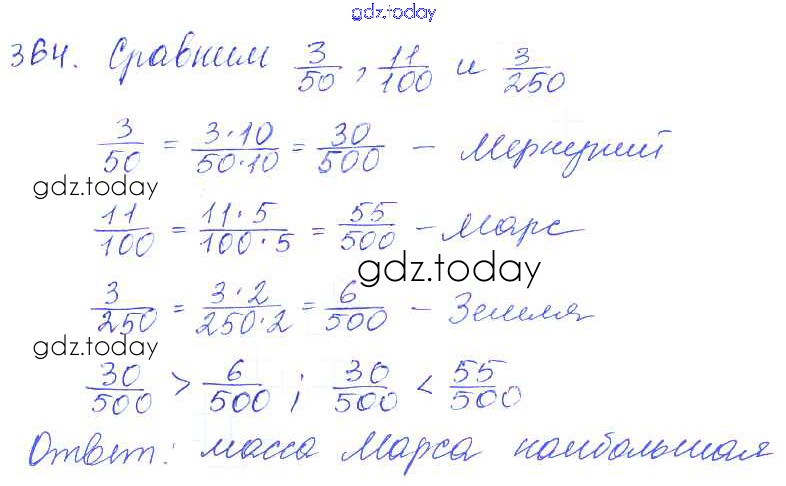 gdz.today
364. Сравним 3/50, 11/100 и 3/250
3/50 = 3·10/50·10 = 30/500 – Меркурий
gdz.today
11/100 = 11·5/100·5 = 55/500 – Марс
gdz.today
3/250 = 3·2/250·2 = 6/500 – Земля
gdz.today
30/500 > 6/500 ; 30/500 < 55/500
Ответ: масса Марса наибольшая